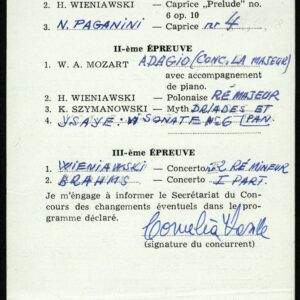 2. H. WIENIAWSKI — Caprice „Prelude" no.
6 op. 10
3. N. PAGANINI — Caprice nr 4
II-ème ÉPREUVE
1. W. A. MOZART ADAGIO (CONC. LA MAJEUR)
avec accompagnement
de piano.
2. H. WIENIAWSKI — Polonaise RÉ MAJEUR
3. K. SZYMANOWSKI — Myth DRIADES ET
4. YSAYE: SONATE No 6 (PAN.
III-ème ÉPREUVE
1. WIENIAWSKI — Concerto No 2 RÉ MINEUR
2. BRAHMS — Concerto I PART.
Je m'engage à informer le Secrétariat du Con-
cours des changements éventuels dans le pro-
gramme déclaré.
Cornelia Vasile
(signature du concurrent)